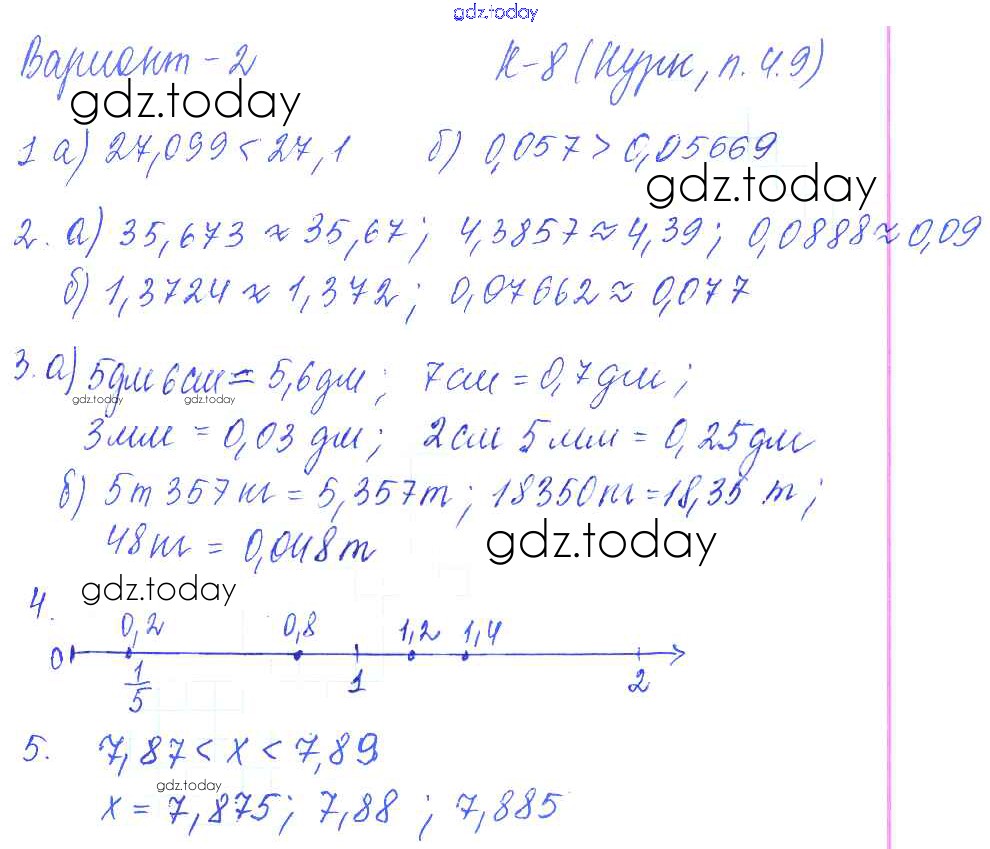 gdz.today
Вариант - 2 К-8 (Нурк, п. 4.9)
gdz.today
1 а) 27,099 < 27,1 б) 0,057 > 0,05669
gdz.today
2. а) 35,673 ≈ 35,67; 4,3857 ≈ 4,39; 0,0888 ≈ 0,09
б) 1,3724 ≈ 1,372; 0,07662 ≈ 0,077
3. а) 5дм 6см = 5,6дм; 7см = 0,7дм;
gdz.today gdz.today
3мм = 0,03 дм; 2см 5мм = 0,25дм
б) 5т 357кг = 5,357т; 18350кг = 18,35 т;
48кг = 0,048т
gdz.today
gdz.today
4.
0,2 0,8 1,2 1,4
0
1/5 1 2
5. 7,87 < x < 7,89
gdz.today
x = 7,875; 7,88; 7,885